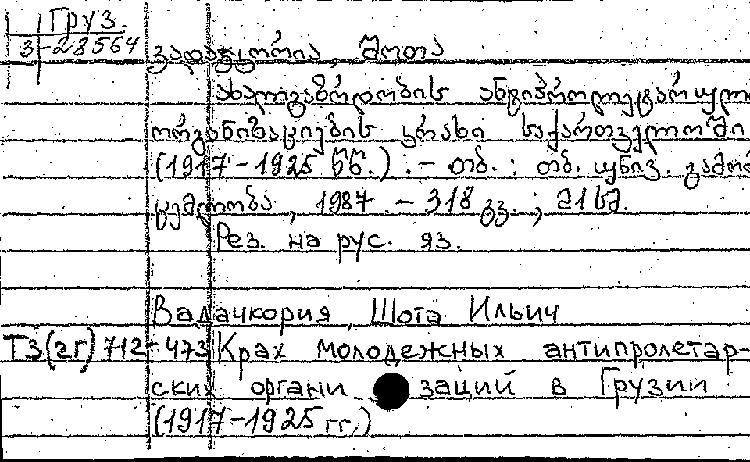 Груз.
3-28564
ვადაჭკორია, შოთა
ახალგაზრდობის ანტიპროლეტარული
ორგანიზაციების კრახი საქართველოში
(1917-1925 წწ.). - თბ.: თბ. უნივ. გამომ-
ცემლობა, 1987. - 318 გვ.; 21 სმ.
Рез. на рус. яз.
Вадачкория, Шота Ильич
ТЗ(2Г) 712-473 Крах молодежных антипролетар-
ских организаций в Грузии
(1917-1925 гг.)